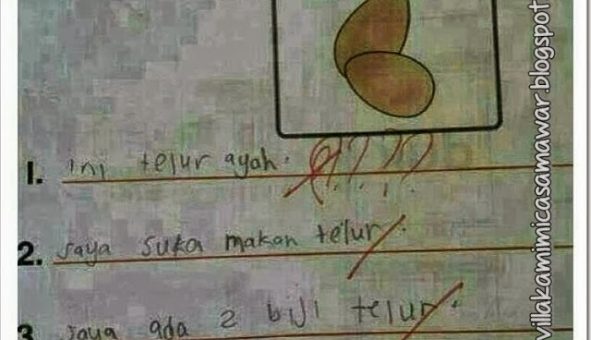 1. ini telur ayah.
????
2. saya suka makan telur.
3 saya ada 2 biji telur.
villakamimicasamawar.blogspot